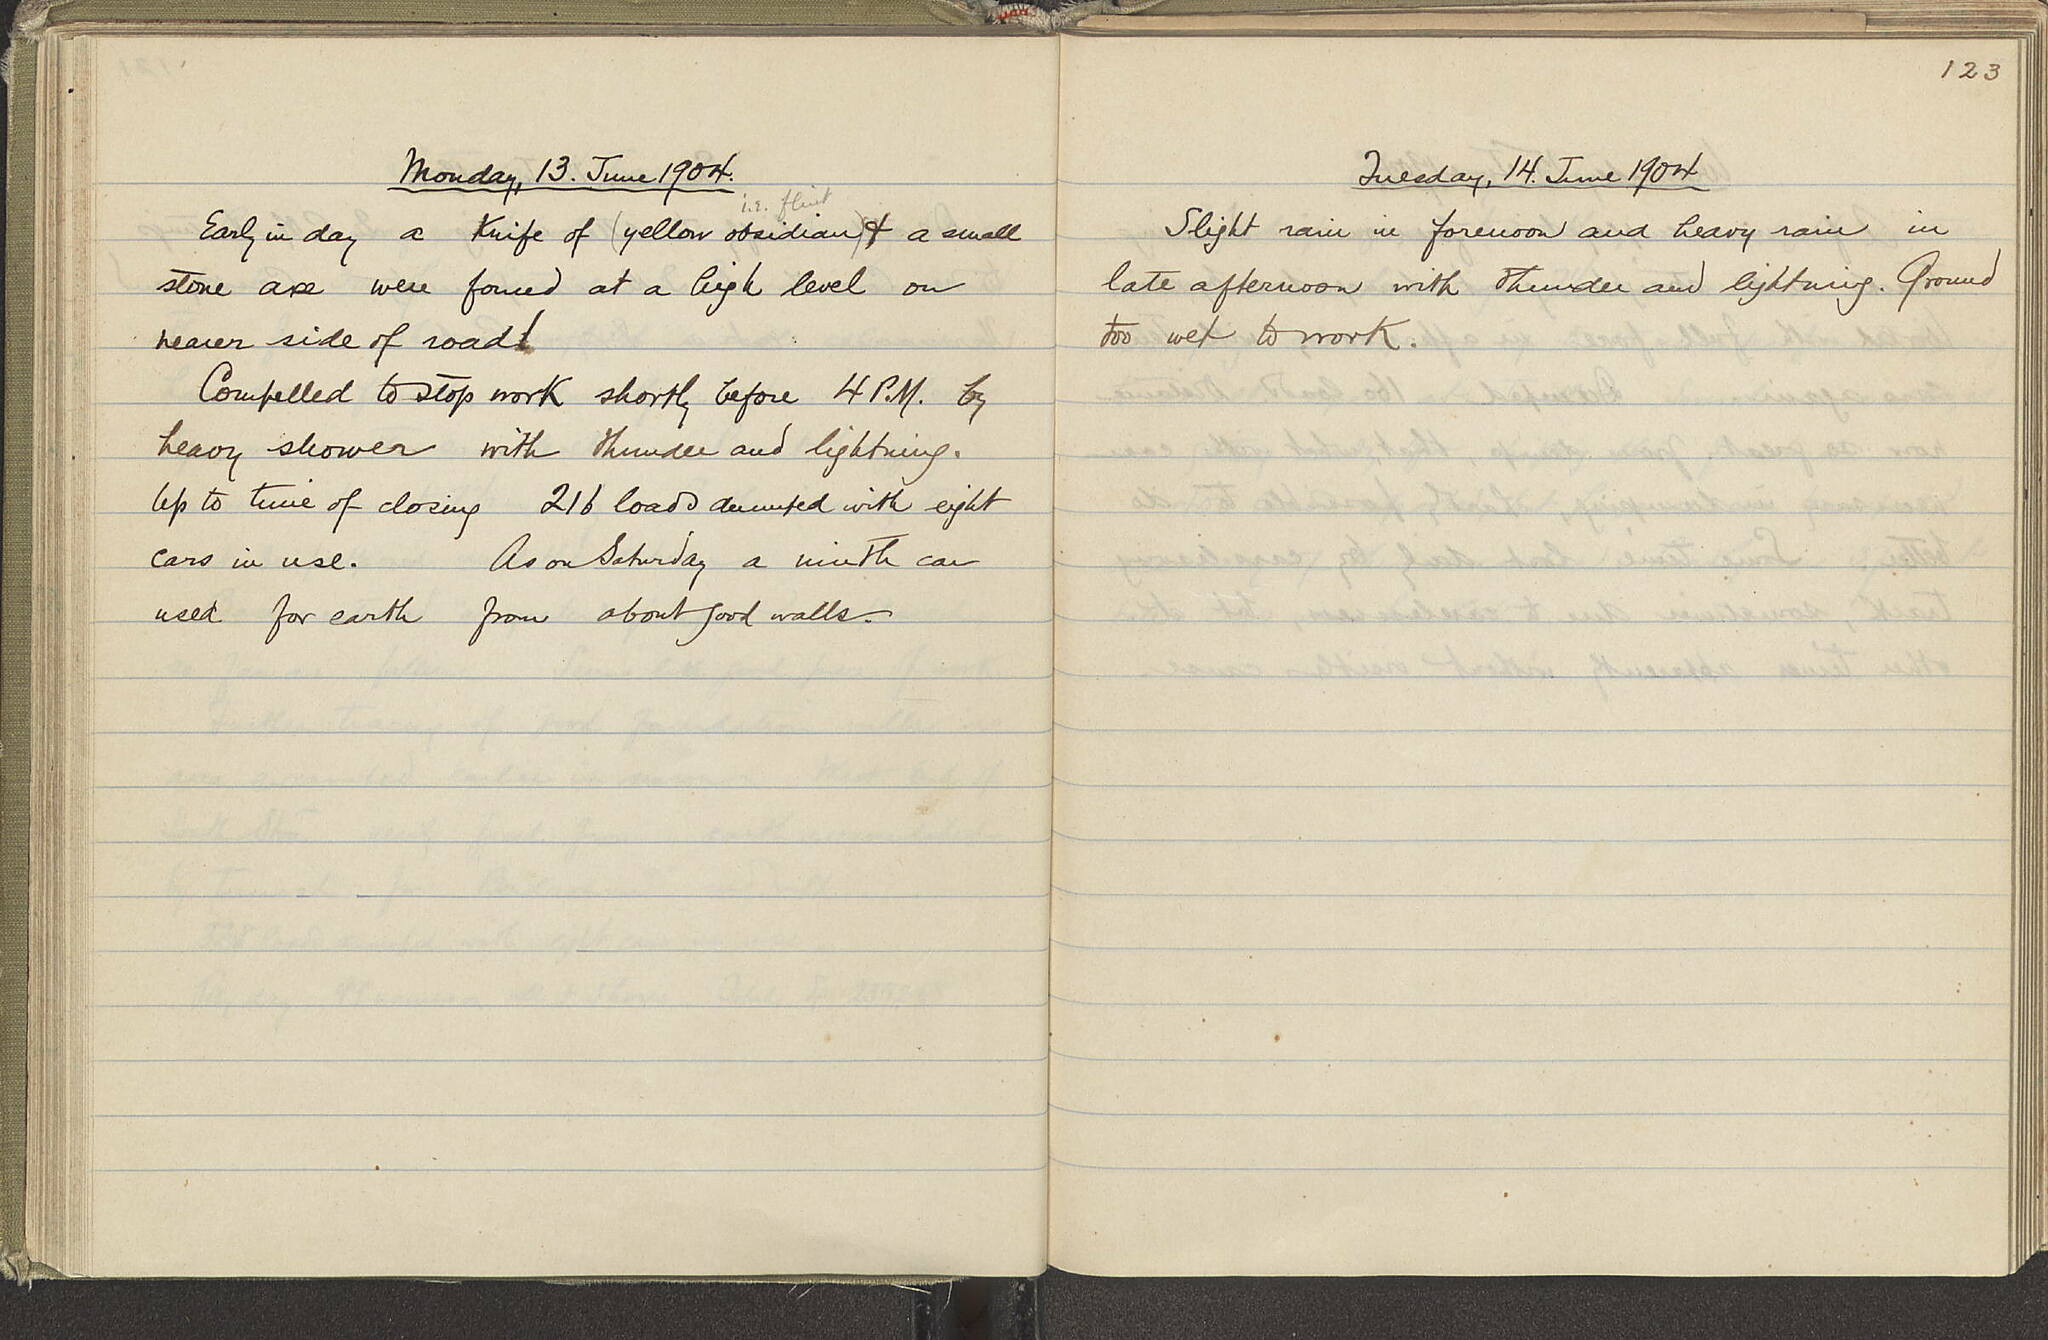 Monday, 13. June 1904.
i.e. flint
Early in day a Knife of (yellow obsidian) & a small
stone axe were found at a high level on
nearer side of road!
Compelled to stop work shortly before 4 P.M. by
heavy shower with thunder and lightning.
Up to time of closing 216 loads dumped with eight
cars in use. As on Saturday a ninth car
used for earth from about good walls.
123
Tuesday, 14. June 1904
Slight rain in forenoon and heavy rain in
late afternoon with thunder and lightning. Ground
too wet to work.